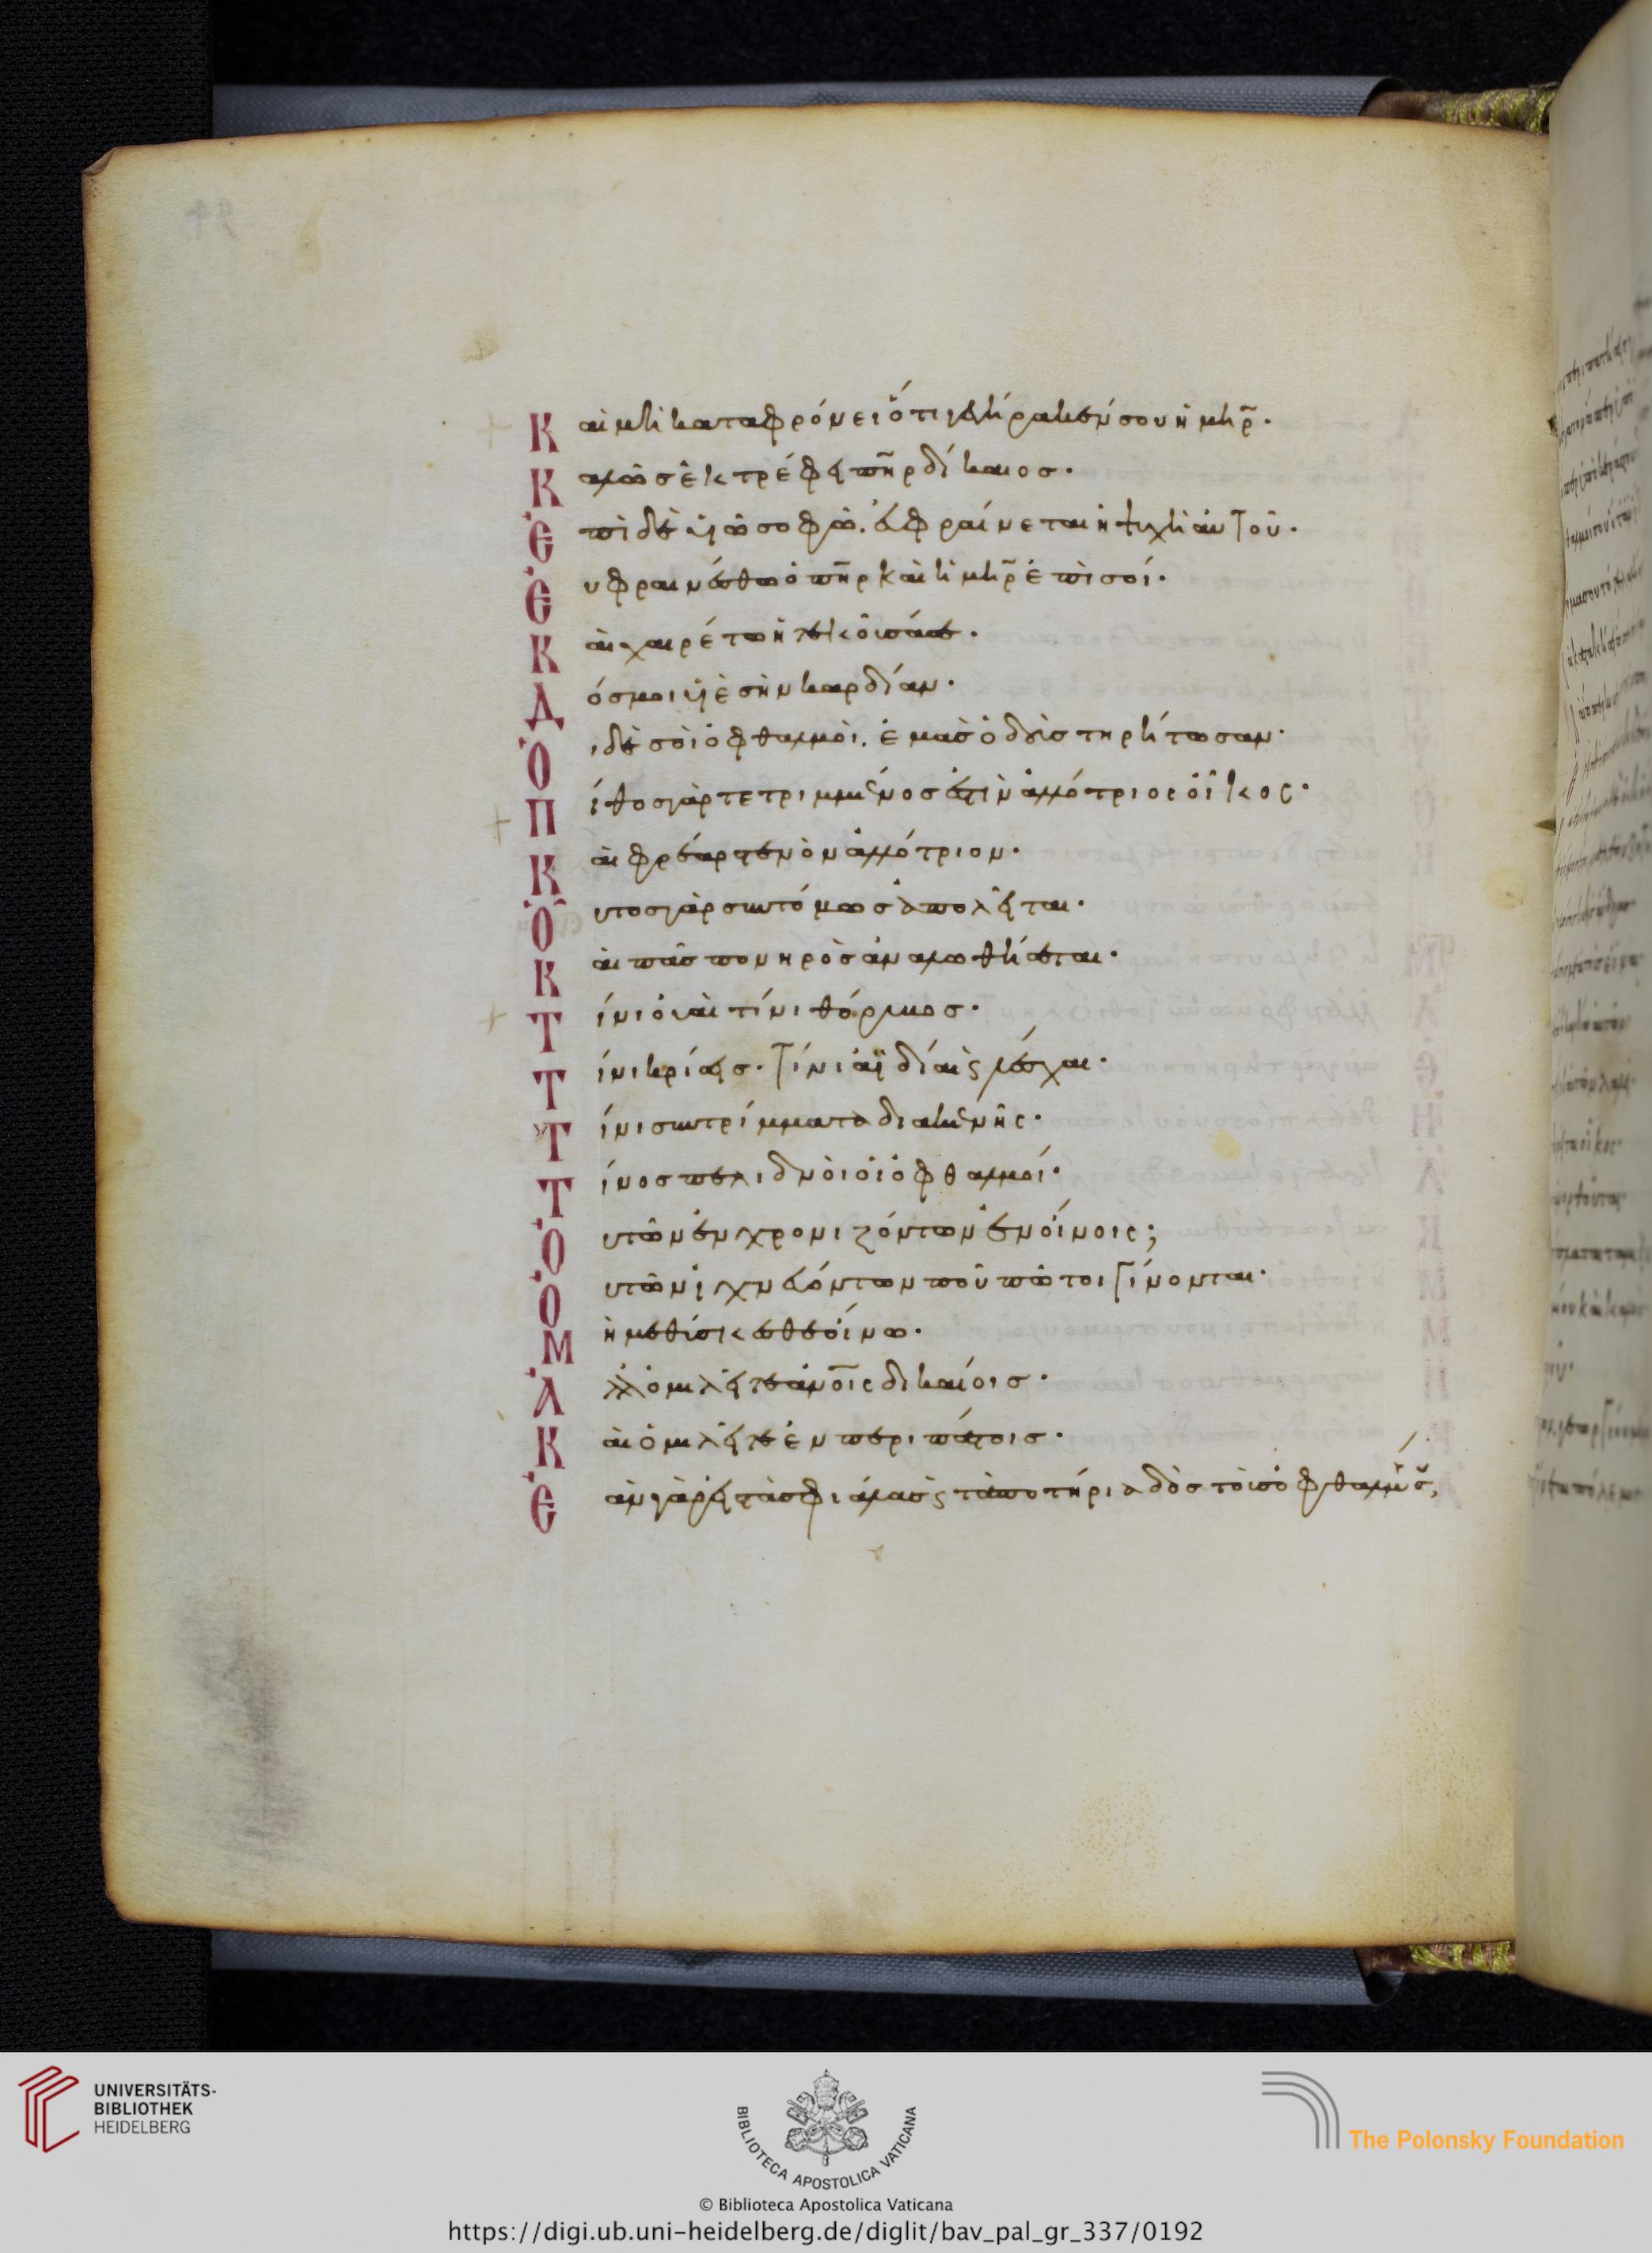 Καὶ μὴ καταφρόνει ὅτι γεγήρακέν σου ἡ μη̄ρ.
Καλῶς ἐκτρέφει πη̄ρ δίκαιος.
Ἐπὶ δὲ υἱῶ σοφῶ. εὐφραίνεται ἡ ψυχὴ αὐτοῦ.
Εὐφραινέσθω ὁ πη̄ρ καὶ ἡ μη̄ρ ἐπὶ σοί.
Καὶ χαιρέτω ἡ τεκοῦσά σε.
Δόσμοι υἱὲ σὴν καρδίαν.
Οἱ δὲ σοὶ ὀφθαλμοὶ. ἐμὰς ὁδοὺς τηρήτωσαν.
Πίθος γὰρ τετριμμένος ἐστὶν ἀλλότριος οἶκος.
Καὶ φρέαρ στενὸν ἀλλότριον.
Οὗτος γὰρ συντόμως ἀπολεῖται.
Καὶ πᾶς πονηρὸς ἀναλωθήσεται.
Τίνι οὐαὶ τίνι θόρυβος.
Τίνι κρίσεις. τίνι ἀηδίαι ϛ λέσχαι.
Τίνι συντρίμματα διακενῆς.
Τίνος πελιδνοὶ οἱ ὀφθαλμοί.
Οὐ τῶν ἐνχρονιζόντων ἐν οἴνοις;
Οὐ τῶν ἰχνευόντων ποῦ πότοι γίνονται.
Μὴ μεθύσκεσθε οἴνω.
Ἀλλ' ὁμιλεῖτε ἀνο̄ις δικαίοις.
Καὶ ὁμιλεῖτε ἐν περιπάτοις.
Ἐὰν γὰρ εἰς τὰς φιάλας ϛ τὰ ποτήρια δὸς τοὺς ὀφθαλμούς σου,
UNIVERSITÄTS-
BIBLIOTHEK
HEIDELBERG
BIBLIOTECA APOSTOLICA VATICANA
The Polonsky Foundation
© Biblioteca Apostolica Vaticana
https://digi.ub.uni-heidelberg.de/diglit/bav_pal_gr_337/0192